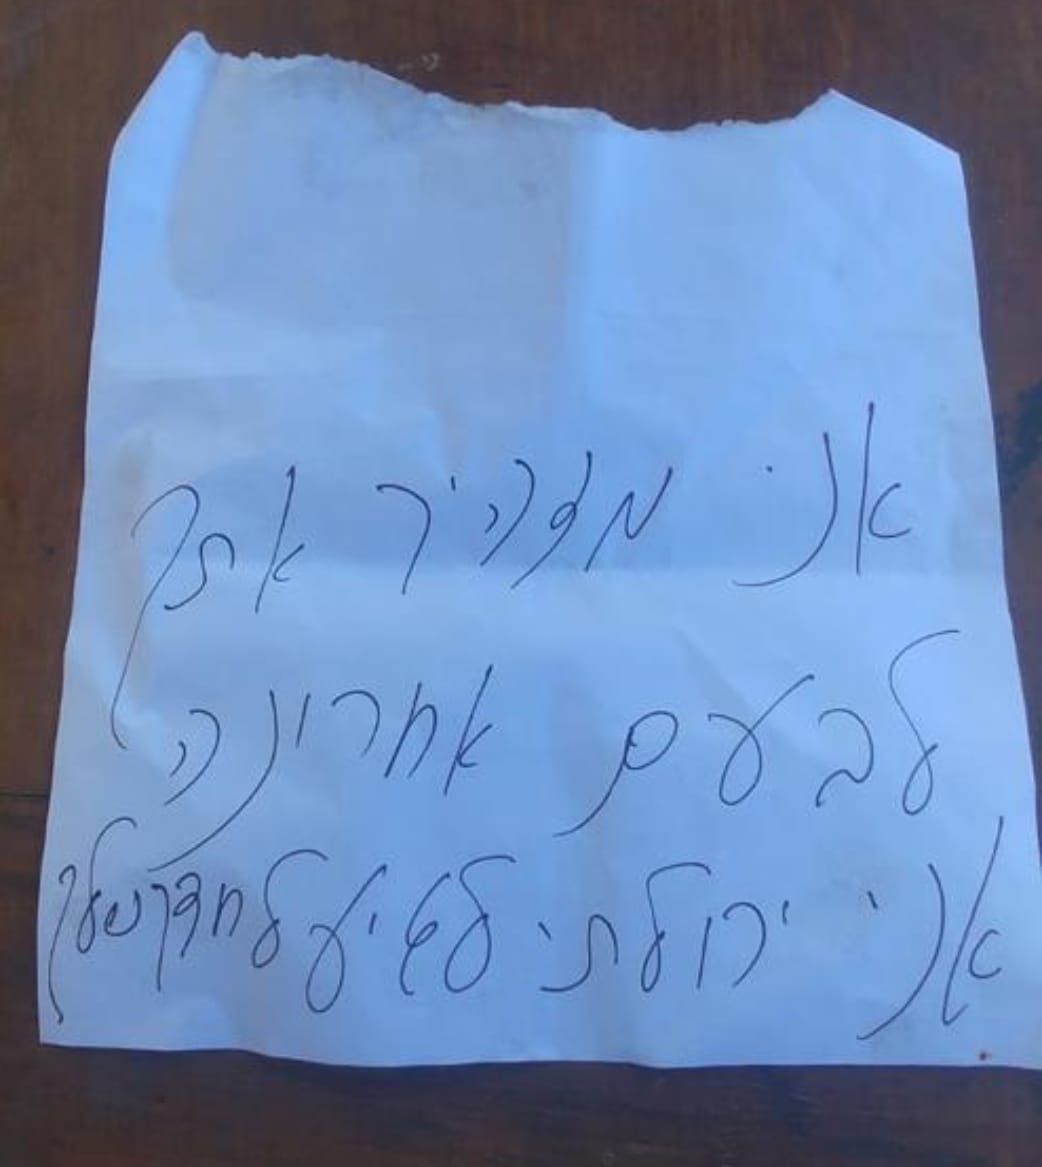 אני מזהיר אתך
לבעם אחרונה
אני יכולתי לגיע לחדק שלך